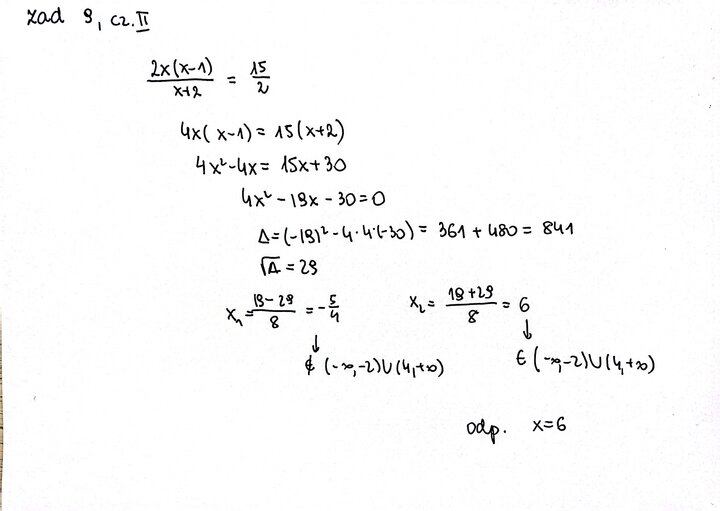 zad 9, cz. II
2x(x-1)/x+2 = 15/2
4x(x-1) = 15(x+2)
4x²-4x = 15x+30
4x²-19x-30=0
Δ=(-19)²-4·4·(-30) = 361+480 = 841
√Δ = 29
x₁= 19-29/8 = -5/4 x₂= 19+29/8 = 6
↓ ↓
∉ (-∞,-2)∪(4,+∞) ∈ (-∞,-2)∪(4,+∞)
odp. x=6